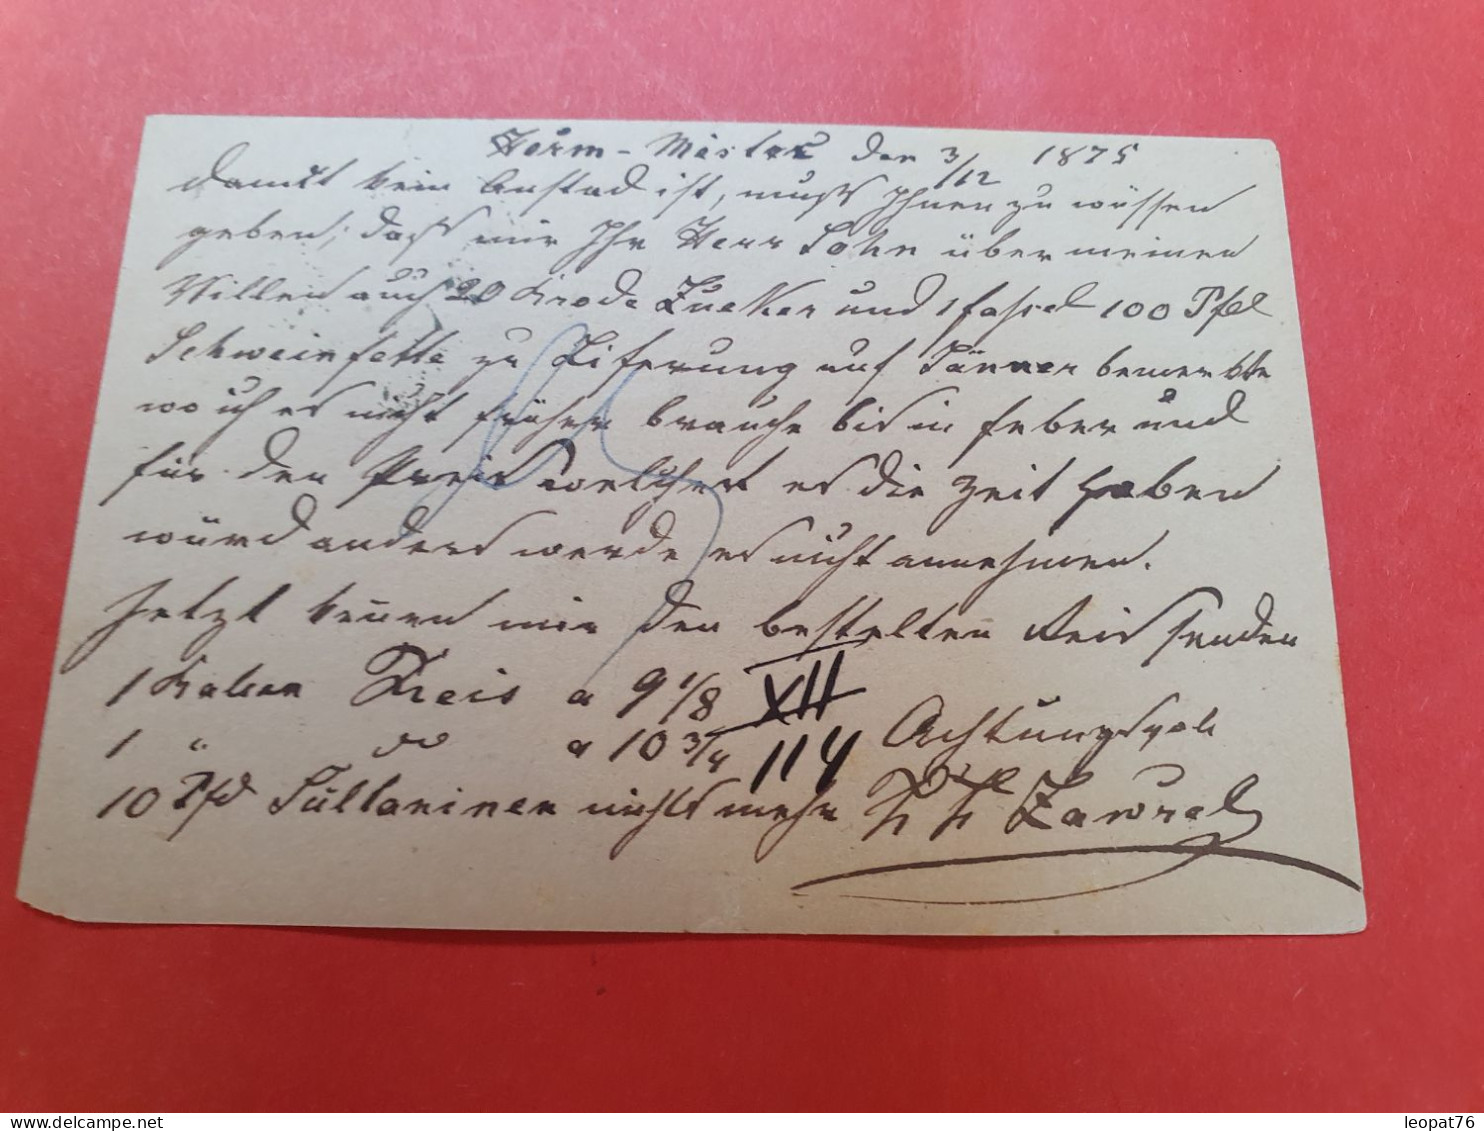 Herm-Mestec den 3/12 1875
damit kein Anstad ist, muß Ihnen zu wüssen
geben, daß mir Ihr Herr Sohn über meinen
Willen auch 20 Brode Zucker und 1 fassel 100 Pfd
Schweinfette zu Liferung auf Jänner bemerkte
wo ich es nicht früher brauche bis in feber und
für den Preis welchen es die Zeit haben
würd anders werde es nicht annehmen.
Jetzt kenen mir den bestelten Reis senden
1 Balen Reis a 9 1/8 XII
1 " do a 10 3/4 114 Achtungsvoll
10 Pfd Sültaninen nichts mehr Zawrel
leopat76